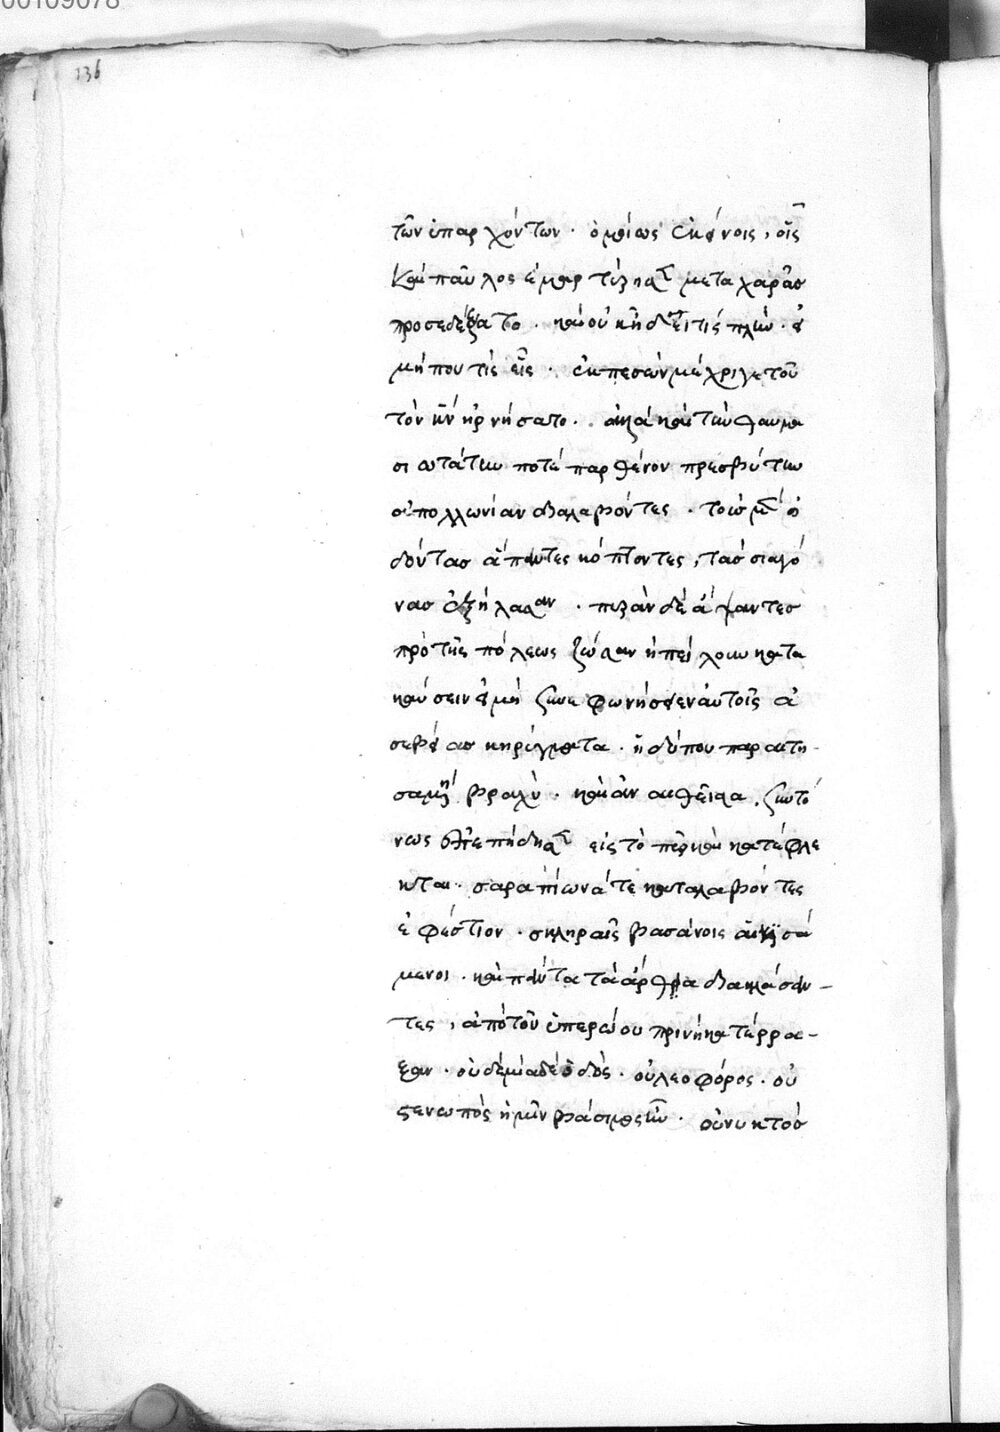 136
τῶν ὑπαρχόντων· ὁμοίως ἐκείνοις, οἷς
καὶ παῦλος ἐμαρτύρησε μετὰ χαρᾶσ
προσεδέξατο· καὶ οὐκ οἶδ' εἴ τις πλὴν· εἰ
μή που τίς εἷς· ἐκπεσὼν μέχρι γε τοῦ
τὸν κν̄ ἠρνήσατο· ἀλλὰ καὶ τὴν θαυμα
σιωτάτην ποτὲ παρθένον πρεσβύτιν
ἀπολλωνίαν διαλαβόντες· τοὺσ μὲν ὀ
δόντασ ἅπαντες κόπτοντες, τὰσ σιαγό
νασ ἐξήλασαν· πυρὰν δὲ ἅψαντεσ
πρὸ τῆς πόλεως ζῶσαν ἠπείλουν κατα
καύσειν εἰ μὴ συνεκφωνήσειεν αὐτοῖς ἀ
σεβείασ κηρύγματα· ἡ δέ που παραιτη-
σαμένη βραχὺ· καὶ ἀνεθεῖσα, συντό
νως ἐπεπήδησεν εἰς τὸ πῦρ καὶ καταπέφλε
κται· σαραπίωνά τε καταλαβόντες
ἐφέστιον· σκληραῖς βασάνοις αἰκισά
μενοι· καὶ πάντα τὰ ἄρθρα διακλάσαν-
τες, ἀπὸ τοῦ ὑπερώου πρινῆ κατέρρα-
ξαν· οὐδεμία δὲ ὁδός· οὐ λεοφόρος· οὐ
στενωπὸς ἡμῖν βάσιμος ἦν· οὐ νυκτὸσ